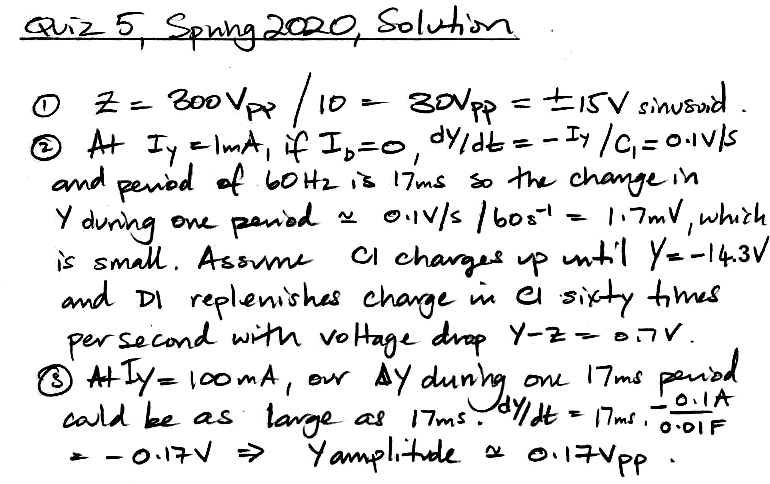 Quiz 5, Spring 2020, Solution
① Z = 300Vpp / 10 = 30Vpp = ±15V sinusoid.
② At Iy = 1mA, if ID=0, dY/dt = -Iy/C1 = 0.1V/s
and period of 60Hz is 17ms so the change in
Y during one period ≈ 0.1V/s /60s⁻¹ = 1.7mV, which
is small. Assume C1 charges up until Y=-14.3V
and D1 replenishes charge in C1 sixty times
per second with voltage drop Y-Z = 0.7V.
③ At Iy = 100mA, our ΔY during one 17ms period
could be as large as 17ms · dY/dt = 17ms · -0.1A/0.01F
= -0.17V ⇒ Y amplitude ≈ 0.17Vpp.